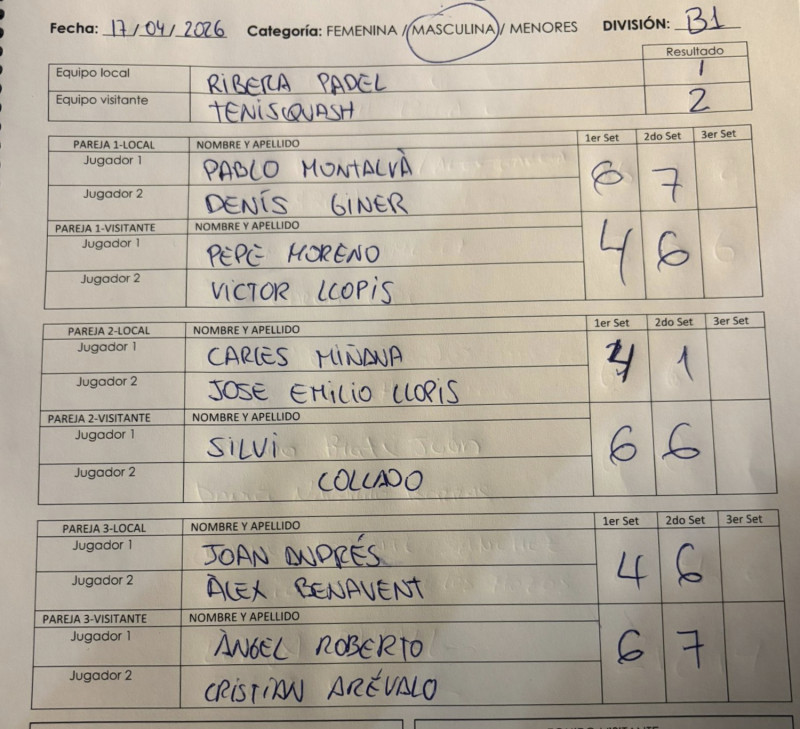 Fecha: 17/04/2026 Categoría: FEMENINA / MASCULINA / MENORES DIVISIÓN: B1
Resultado
Equipo local RIBERA PADEL 1
Equipo visitante TENISQUASH 2
PAREJA 1-LOCAL NOMBRE Y APELLIDO 1er Set 2do Set 3er Set
Jugador 1 PABLO MONTALVÀ
6 7
Jugador 2 DENÍS GINER
PAREJA 1-VISITANTE NOMBRE Y APELLIDO
Jugador 1 PEPE MORENO
4 6
Jugador 2 VICTOR LLOPIS
PAREJA 2-LOCAL NOMBRE Y APELLIDO 1er Set 2do Set 3er Set
Jugador 1 CARLES MIÑANA
4 1
Jugador 2 JOSE EMILIO LLOPIS
PAREJA 2-VISITANTE NOMBRE Y APELLIDO
Jugador 1 SILVI
6 6
Jugador 2 COLLADO
PAREJA 3-LOCAL NOMBRE Y APELLIDO 1er Set 2do Set 3er Set
Jugador 1 JOAN ANDRÉS
4 6
Jugador 2 ÀLEX BENAVENT
PAREJA 3-VISITANTE NOMBRE Y APELLIDO
Jugador 1 ÀNGEL ROBERTO
6 7
Jugador 2 CRISTIAN ARÉVALO